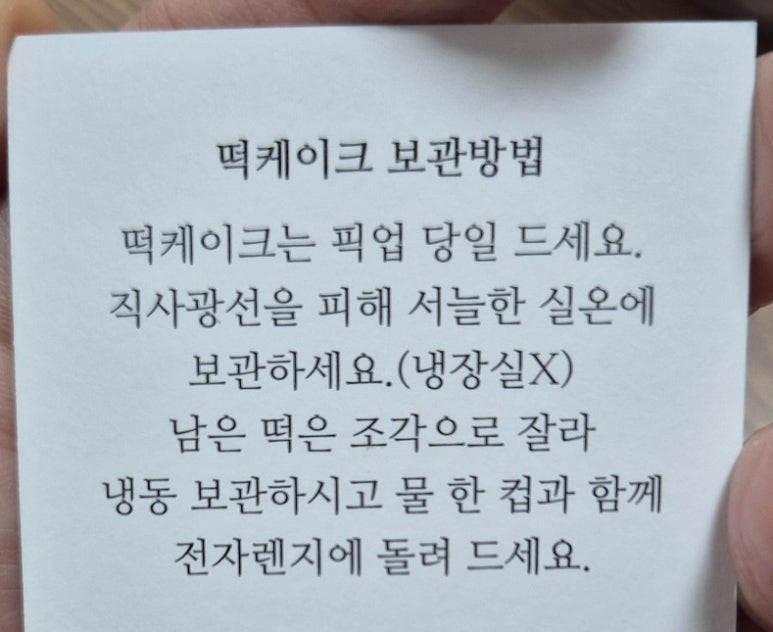 떡케이크 보관방법
떡케이크는 픽업 당일 드세요.
직사광선을 피해 서늘한 실온에
보관하세요.(냉장실X)
남은 떡은 조각으로 잘라
냉동 보관하시고 물 한 컵과 함께
전자렌지에 돌려 드세요.